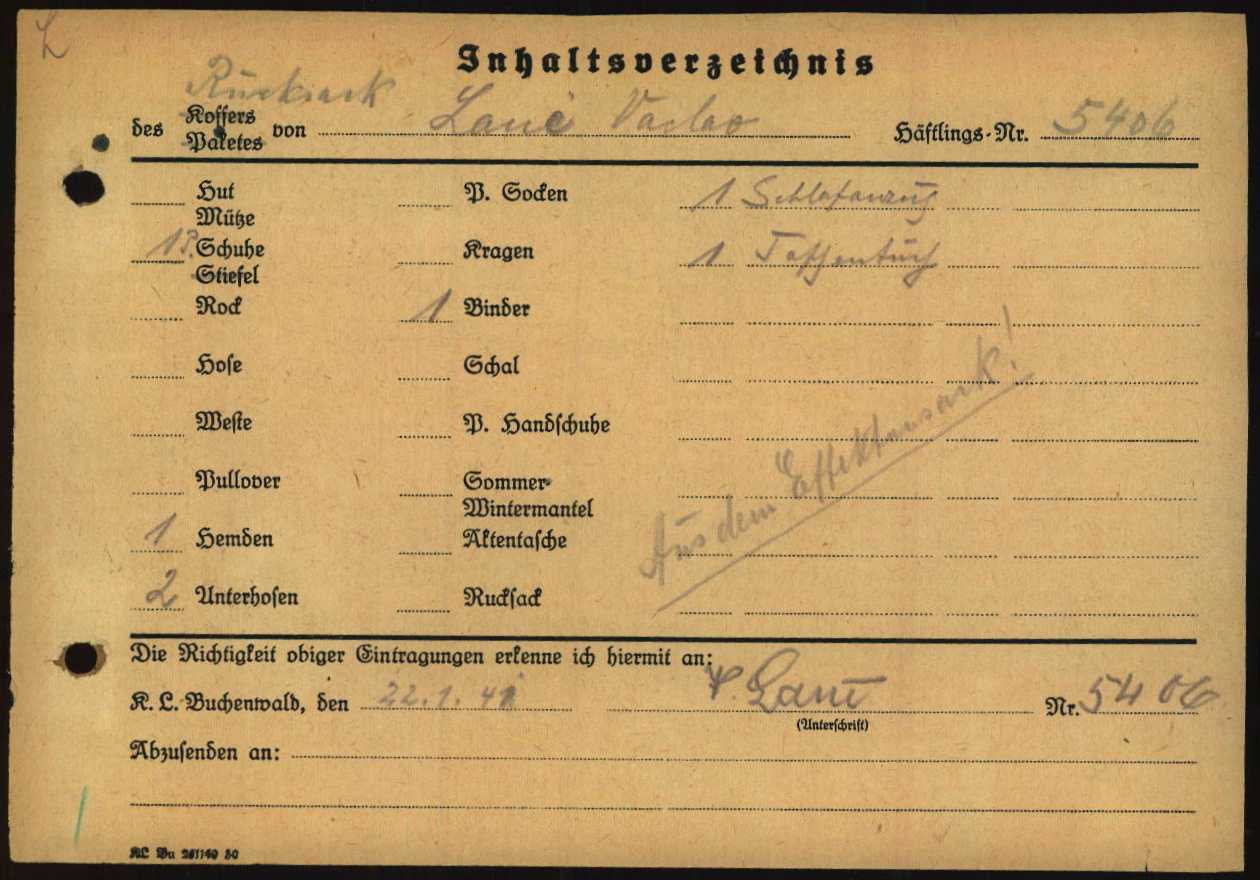 L
Inhaltsverzeichnis
Rucksack
des Koffers von Lanč Vaclav Häftlings-Nr. 5406
Paketes
Hut P. Socken 1 Schlafanzug
Mütze
1 P. Schuhe Kragen 1 Taschentuch
Stiefel
Rock 1 Binder
Hose Schal
Weste P. Handschuhe
Pullover Sommer-
Wintermantel
1 Hemden Aktentasche
2 Unterhosen Rucksack
Aus dem Effektensack!
Die Richtigkeit obiger Eintragungen erkenne ich hiermit an:
K. L.-Buchenwald, den 22.1.41 Nr. 5406
(Unterschrift)
Abzusenden an:
KL Bu 261140 50